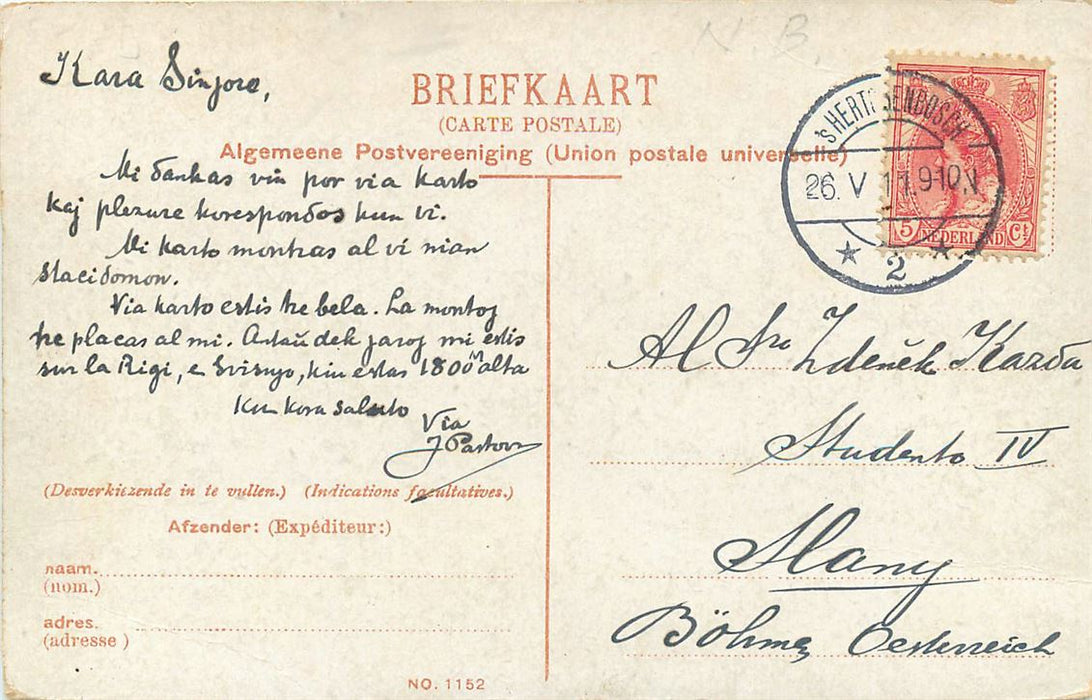 N B
Kara Sinjoro,
BRIEFKAART
(CARTE POSTALE)
Algemeene Postvereeniging (Union postale universelle)
Mi dankas vin por via karto
kaj plezure korespondos kun vi.
Mi karto montras al vi nian
stacidomon.
Via karto estis tre bela. La montoj
tre placas al mi. Antaŭ dek jaroj mi estis
sur la Rigi, en Svisujo, kiu estas 1800 m alta
Kun kora saluto
Via
J Pastoors
(Desverkiezende in te vullen.) (Indications facultatives.)
Afzender: (Expéditeur:)
naam.
(nom.)
adres.
(adresse)
NO. 1152
'S HERTOGENBOSCH
26. V 11. 9-10N
2
5 NEDERLAND Ct
Al Sro Zdeněk Kazda
Studento IV
Slany
Böhmen Oesterreich